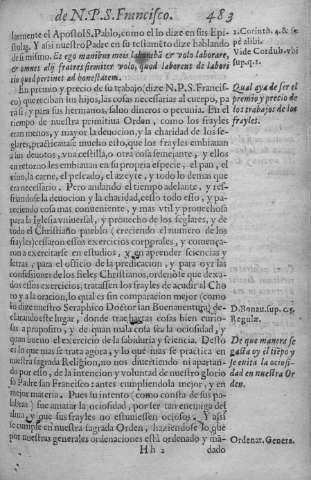 de N.P.S. Francisco. 483
larmente el Apostol S. Pablo, como el lo dize en sus Epis-
tolas. Y assi nuestro Padre en su testamẽto dize hablando
de si mismo. Et ego manibus meis laborabã & volo laborare,
& omnes alij fratres firmiter volo, quod laborent de labori
tio quod pertinet ad honestatem.
2. Corinth. 4. & se
pè alibi.
Vide Cordub. vbi
sup. q. 1.
En premio y precio de su trabajo (dize N.P.S. Francis-
co) que reciban sus hijos, las cosas necessarias al cuerpo, pa
ra si: y para sus hermanos, saluo dineros o pecunia. En el
tiempo de nuestra primitiua Orden, como los frayles
eran menos, y mayor la deuocion, y la charidad de los se-
glares, practicauase mucho esto, que los frayles embiauan
a los deuotos, vna cestilla, o otra cosa semejante, y ellos
en retorno les embiauan en su propria especie, el pan, el
vino, la carne, el pescado, el azeyte, y todo lo demas que
era necessario. Pero andando el tiempo adelante, y res-
friandose la deuocion y la charidad, cessò todo esto, y pa-
reciendo cosa mas conueniente, y mas vtil y prouechosa
para la Iglesia vniuersal, y prouecho de los seglares, y de
todo el Christiano pueblo (creciendo el numero de los
frayles) cessaron essos exercicios corporales, y comença-
ron a exercitarse en estudios, y en aprender sciencias y
letras, para el officio de la predicacion, y para oyr las
confessiones de los fieles Christianos, ordenose que dexa-
dos essos exercicios, tratassen los frayles de acudir al Cho
ro y a la oracion, lo qual es sin comparacion mejor (como
lo dize nuestro Seraphico Doctor san Buenauentura) de-
clarando este lugar, donde trae hartas cosas bien curio-
sas a proposito, y de quan mala cosa sea la ociosidad, y
quan bueno el exercicio de la sabiduria y sciencia. Desto
es lo que mas se trata agora, y lo que mas se practica en
nuestra sagrada Religion, no nos diuertiendo ni apartan-
do por esso, de la intencion y voluntad de nuestro glorio
so Padre san Francisco: antes cumpliendola mejor, y en
mejor materia. Pues su intento (como consta de sus pa-
labras) fue amatar la ociosidad, por ser tan enemiga del
alma, y que sus frayles no estuuiessen ociosos. Y assi
se cumple en nuestra sagrada Orden, haziendose lo que
por nuestras generales ordenaciones està ordenado y mã-
Qual aya de ser el
premio y precio de
los trabajos de los
frayles.
D. Bonau. sup. c. 5.
Regulæ.
De que manera se
gasta oy el tiẽpo y
se euita la ociosi-
dad en nuestra Or
den.
Ordenat. Genera.
Hh 2 dado